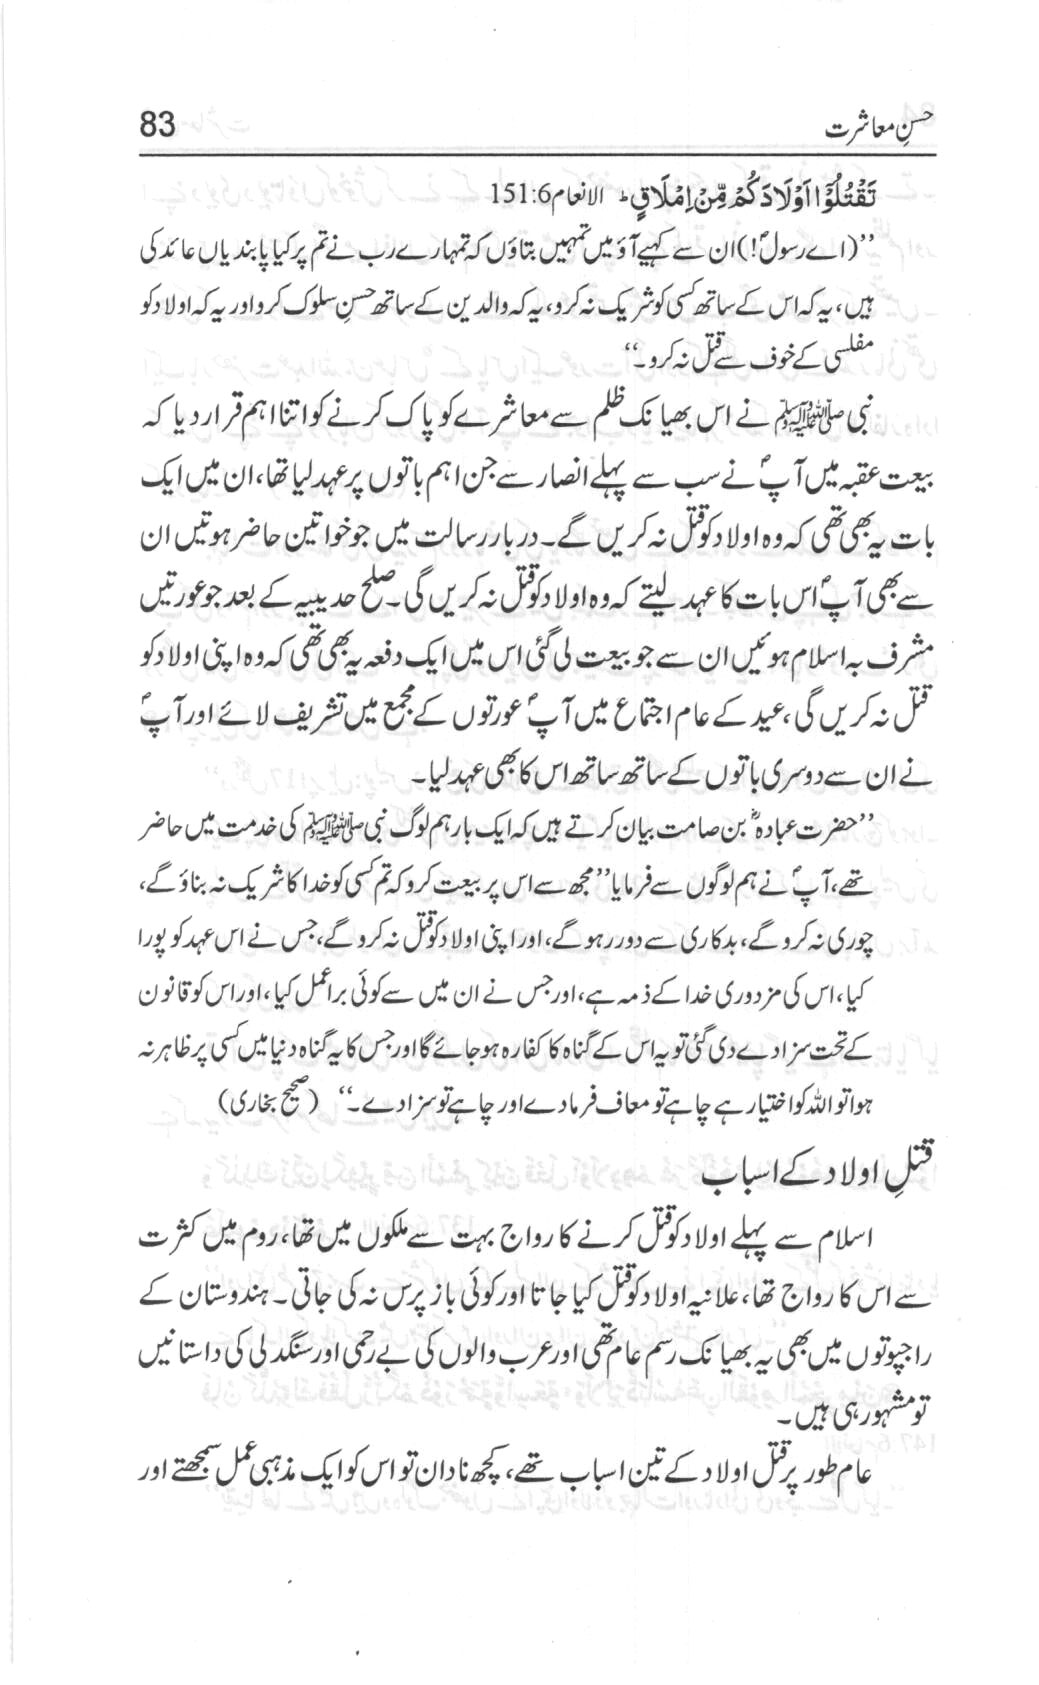 حسنِ معاشرت 83
تَقْتُلُوْٓا اَوْلَادَكُمْ مِّنْ اِمْلَاقٍ ؕ الانعام 151:6
’’(اے رسولؐ!) ان سے کہیے آؤ میں تمہیں بتاؤں کہ تمہارے رب نے تم پر کیا پابندیاں عائد کی
ہیں، یہ کہ اس کے ساتھ کسی کو شریک نہ کرو، یہ کہ والدین کے ساتھ حسنِ سلوک کرو اور یہ کہ اولاد کو
مفلسی کے خوف سے قتل نہ کرو۔‘‘
نبی ﷺ نے اس بھیانک ظلم سے معاشرے کو پاک کرنے کو اتنا اہم قرار دیا کہ
بیعت عقبہ میں آپؐ نے سب سے پہلے انصار سے جن اہم باتوں پر عہد لیا تھا، ان میں ایک
بات یہ بھی تھی کہ وہ اولاد کو قتل نہ کریں گے۔ دربار رسالت میں جو خواتین حاضر ہوتیں ان
سے بھی آپؐ اس بات کا عہد لیتے کہ وہ اولاد کو قتل نہ کریں گی۔ صلح حدیبیہ کے بعد جو عورتیں
مشرف بہ اسلام ہوئیں ان سے جو بیعت لی گئی اس میں ایک دفعہ یہ بھی تھی کہ وہ اپنی اولاد کو
قتل نہ کریں گی، عید کے عام اجتماع میں آپؐ عورتوں کے مجمع میں تشریف لائے اور آپؐ
نے ان سے دوسری باتوں کے ساتھ ساتھ اس کا بھی عہد لیا۔
’’حضرت عبادہؓ بن صامت بیان کرتے ہیں کہ ایک بار ہم لوگ نبی ﷺ کی خدمت میں حاضر
تھے، آپؐ نے ہم لوگوں سے فرمایا ’’مجھ سے اس پر بیعت کرو کہ تم کسی کو خدا کا شریک نہ بناؤ گے،
چوری نہ کرو گے، بدکاری سے دور رہو گے، اور اپنی اولاد کو قتل نہ کرو گے، جس نے اس عہد کو پورا
کیا، اس کی مزدوری خدا کے ذمہ ہے، اور جس نے ان میں سے کوئی برا عمل کیا، اور اس کو قانون
کے تحت سزا دے دی گئی تو یہ اس کے گناہ کا کفارہ ہو جائے گا اور جس کا یہ گناہ دنیا میں کسی پر ظاہر نہ
ہوا تو اللہ کو اختیار ہے چاہے تو معاف فرما دے اور چاہے تو سزا دے۔‘‘ (صحیح بخاری)
قتلِ اولاد کے اسباب
اسلام سے پہلے اولاد کو قتل کرنے کا رواج بہت سے ملکوں میں تھا، روم میں کثرت
سے اس کا رواج تھا، علانیہ اولاد کو قتل کیا جاتا اور کوئی باز پرس نہ کی جاتی۔ ہندوستان کے
راجپوتوں میں بھی یہ بھیانک رسم عام تھی اور عرب والوں کی بے رحمی اور سنگدلی کی داستانیں
تو مشہور رہی ہیں۔
عام طور پر قتل اولاد کے تین اسباب تھے، کچھ نادان تو اس کو ایک مذہبی عمل سمجھتے اور